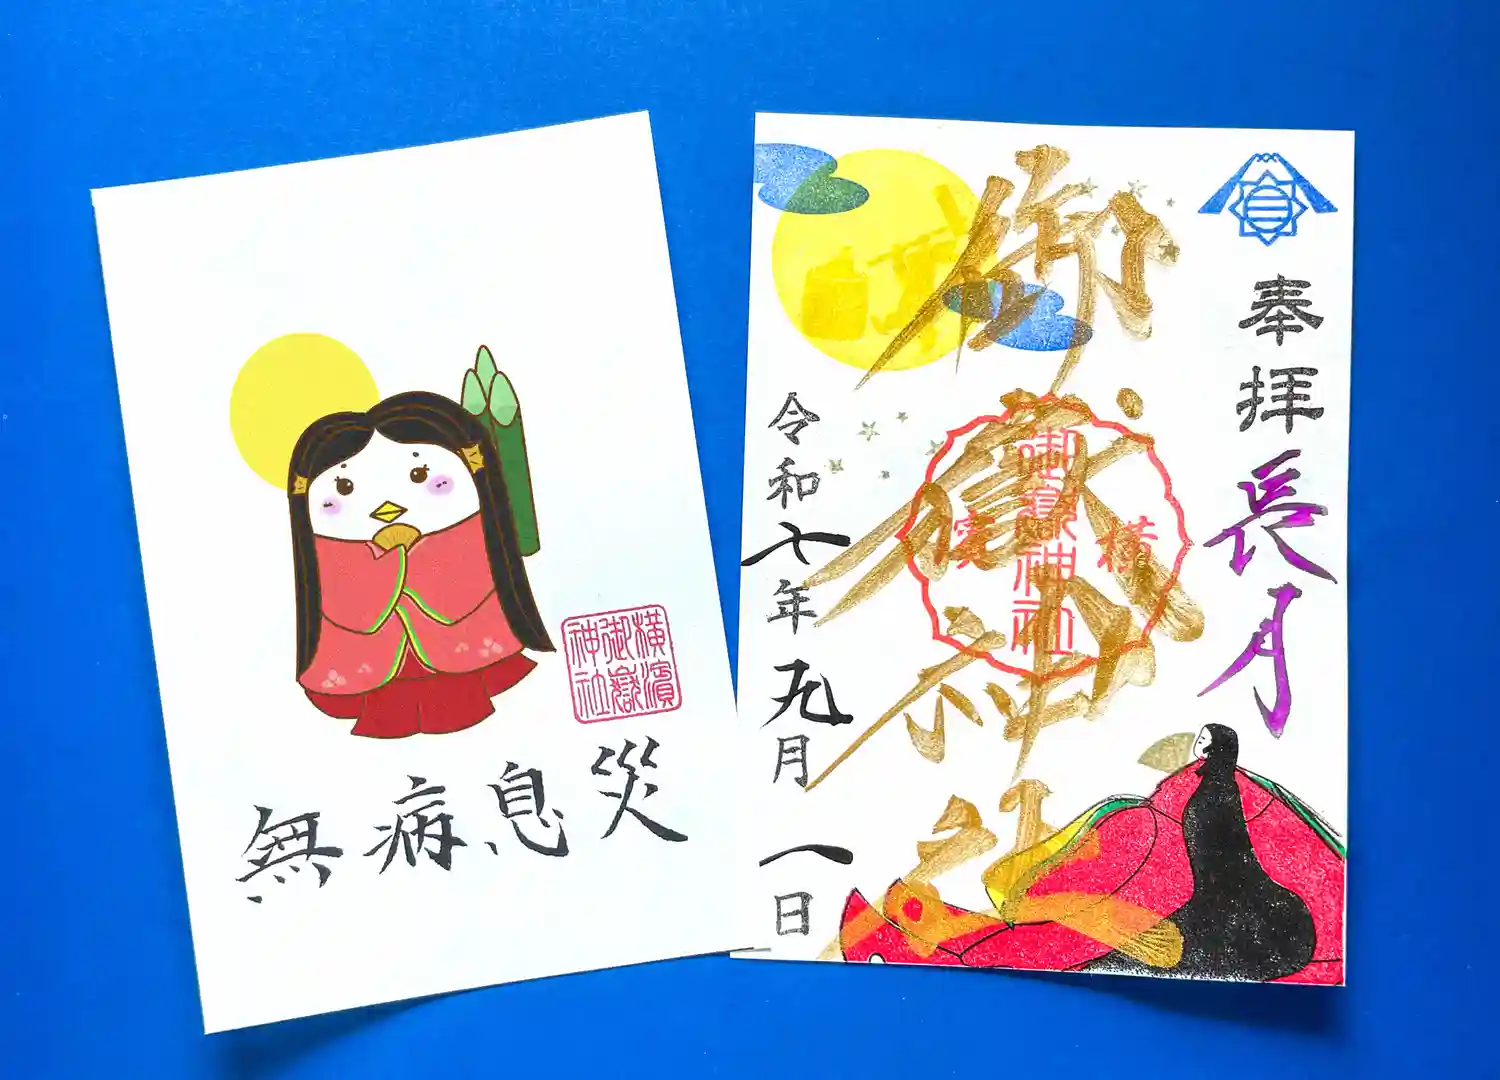 無病息災
横濱
御嶽
神社
奉拝
長月
御嶽神社
横濱
御嶽神社
令和七年九月一日